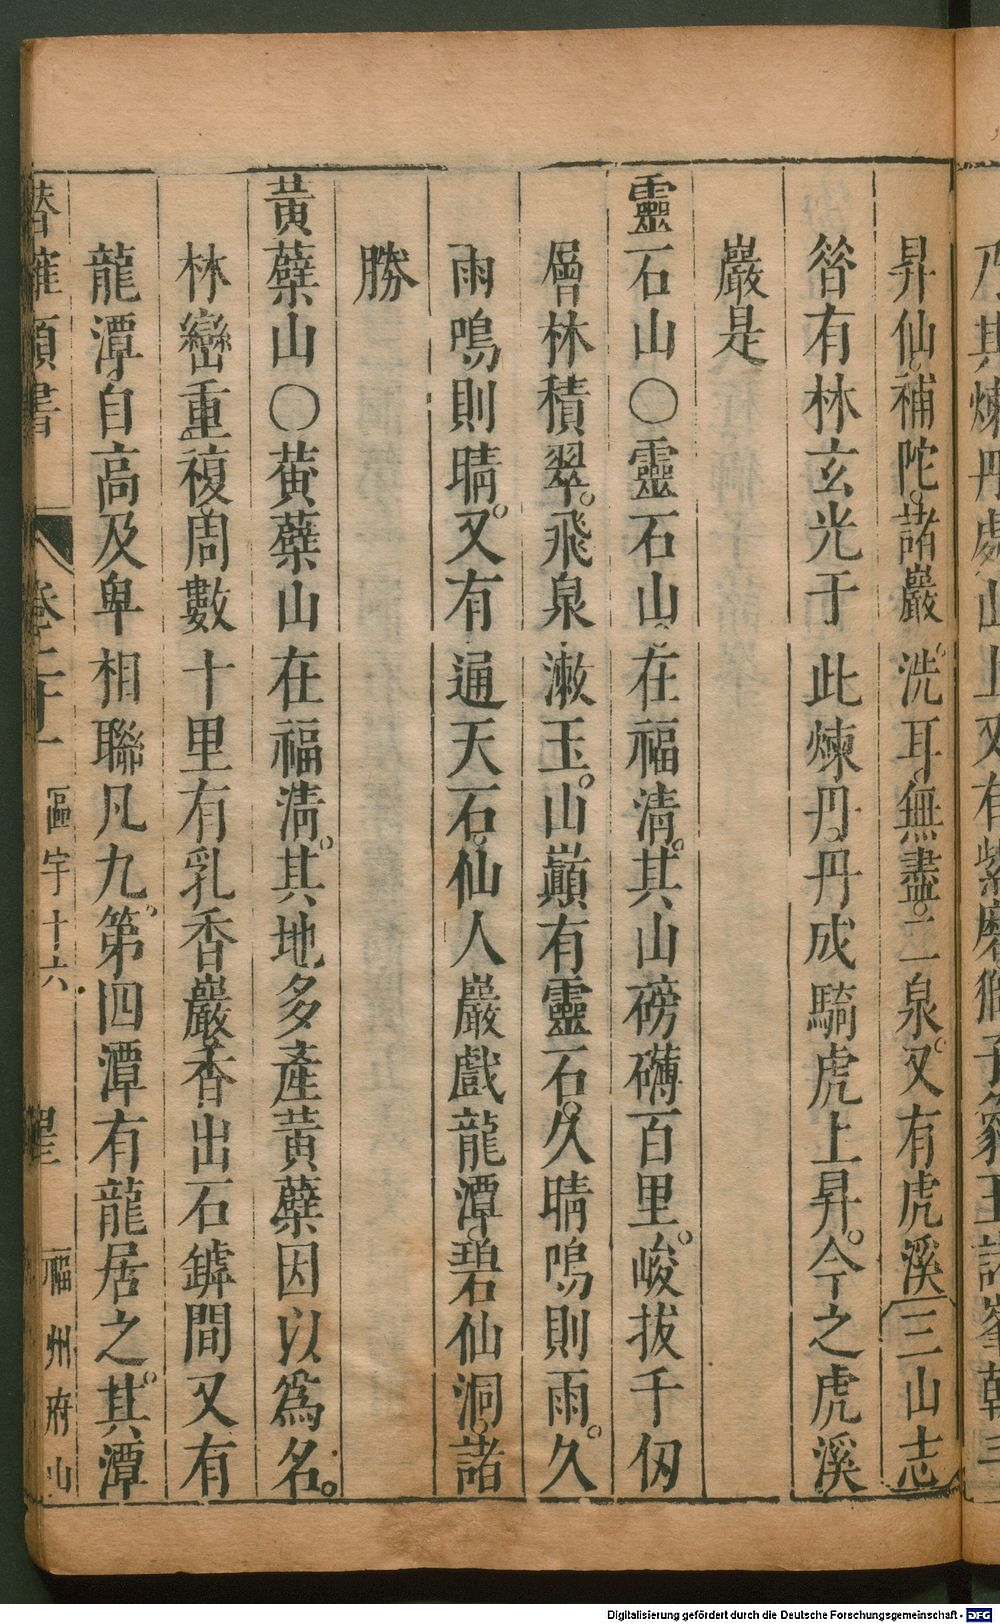 乃其煉丹處山上又有紫磨
昇仙補陀諸巖洗耳無盡二泉又有虎溪〔三山志
昝有林玄光于此煉丹丹成騎虎上昇今之虎溪
巖是
靈石山○靈石山在福清其山磅礴百里峻拔千仭
層林積翠飛泉漱玉山巔有靈石久晴鳴則雨久
雨鳴則晴又有通天石仙人巖戲龍潭碧仙洞諸
勝
黃蘗山○黃蘗山在福淸其地多產黃蘗因以爲名
林巒重複周數十里有乳香巖香出石罅間又有
龍潭自高及卑相聯凡九第四潭有龍居之其潭
卷二十一 區宇十六 星 福州府山
Digitalisierung gefördert durch die Deutsche Forschungsgemeinschaft - DFG